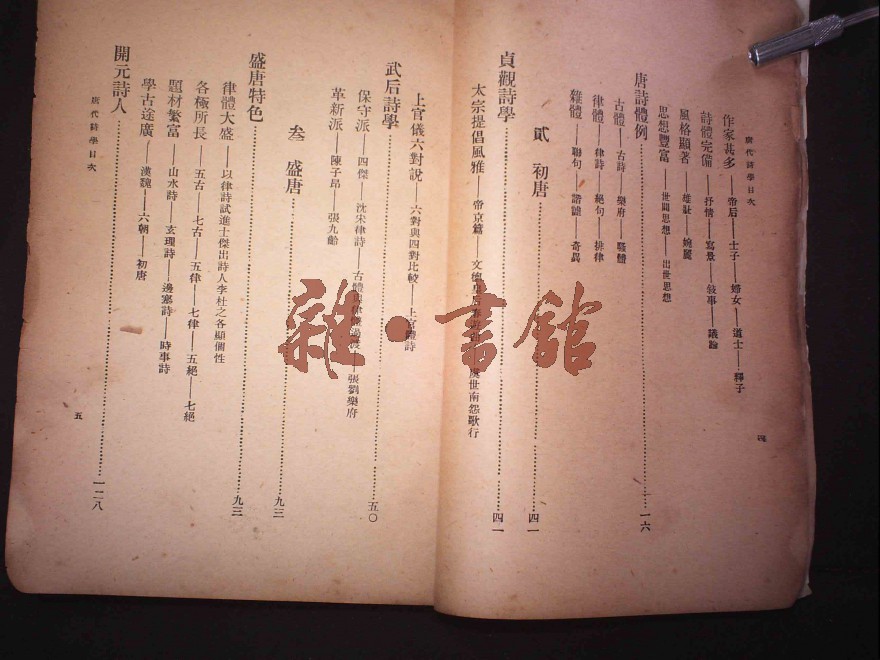 唐代詩學目次
作家甚多——帝后——士子——婦女——道士——釋子
詩體完備——抒情——寫景——敍事——議論
風格顯著——雄壯——婉麗
思想豐富——世間思想——出世思想
唐詩體例……一六
古體——古詩——樂府——騷體
律體——律詩——絕句——排律
雜體——聯句——諧謔——奇異
貳 初唐……四一
貞觀詩學……四一
太宗提倡風雅——帝京篇——文德皇后春遊曲——虞世南怨歌行
四
上官儀六對說——六對與四對比較——上官體詩
武后詩學……五〇
保守派——四傑——沈宋律詩——古體與律體過渡——張劉樂府
革新派——陳子昂——張九齡
叁 盛唐……九三
盛唐特色……九三
律體大盛——以律詩試進士傑出詩人李杜之各顯個性
各極所長——五古——七古——五律——七律——五絕——七絕
題材繁富——山水詩——玄理詩——邊塞詩——時事詩
學古途廣——漢魏——六朝——初唐
開元詩人……一二八
唐代詩學目次
五
雜·書館